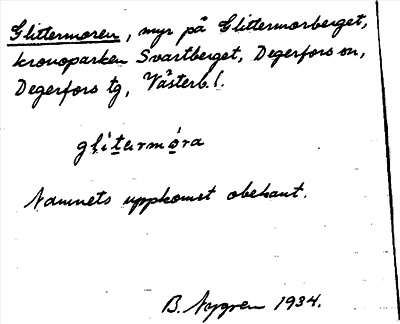 Glittermoren, myr på Glittermorberget,
kronoparken Svartberget, Degerfors sn,
Degerfors tg, Västerb. l.
glìtermóra
Namnets uppkomst obekant.
B. Nygren 1934.